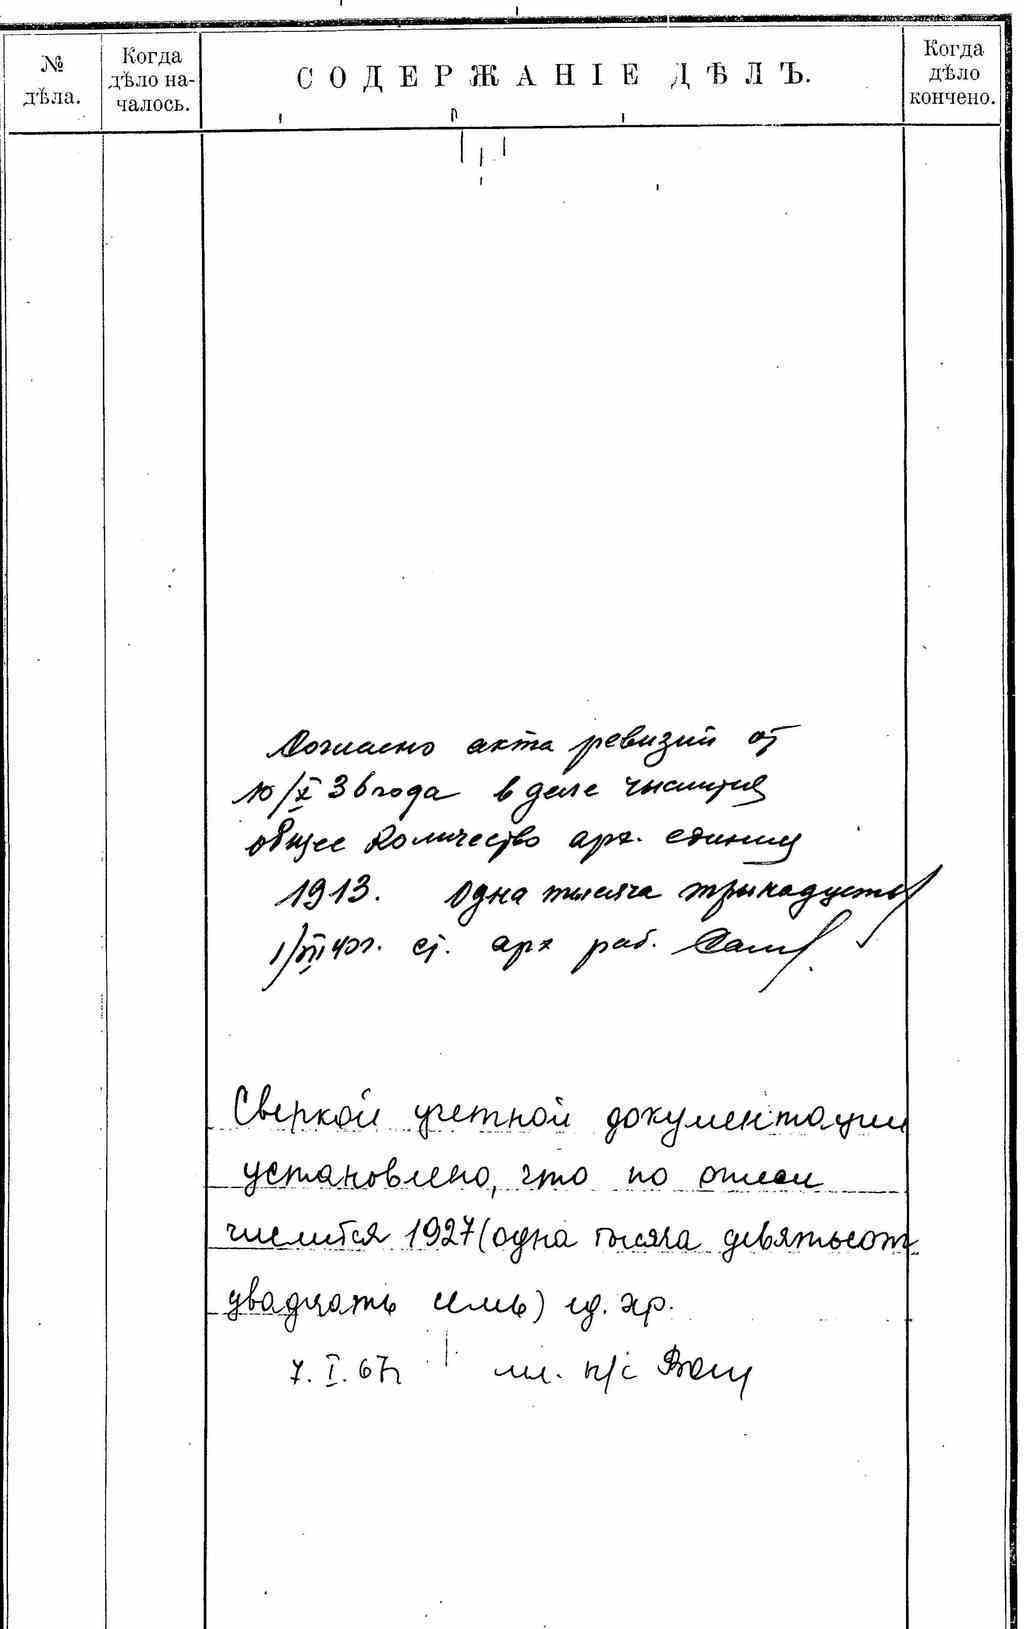 № дѣла.
Когда дѣло на-чалось.
СОДЕРЖАНІЕ ДѢЛЪ.
Когда дѣло кончено.
Согласно акта ревизии от
10/X 36 года в деле числится
общее количество арх. единиц
1913. Одна тысяча тринадцать
1/VII 40г. ст. арх раб.
Сверкой учетной документации
установлено, что по описи
числится 1927 (одна тысяча девятьсот
двадцать семь) ед. хр.
7.I.67г мл. н/с